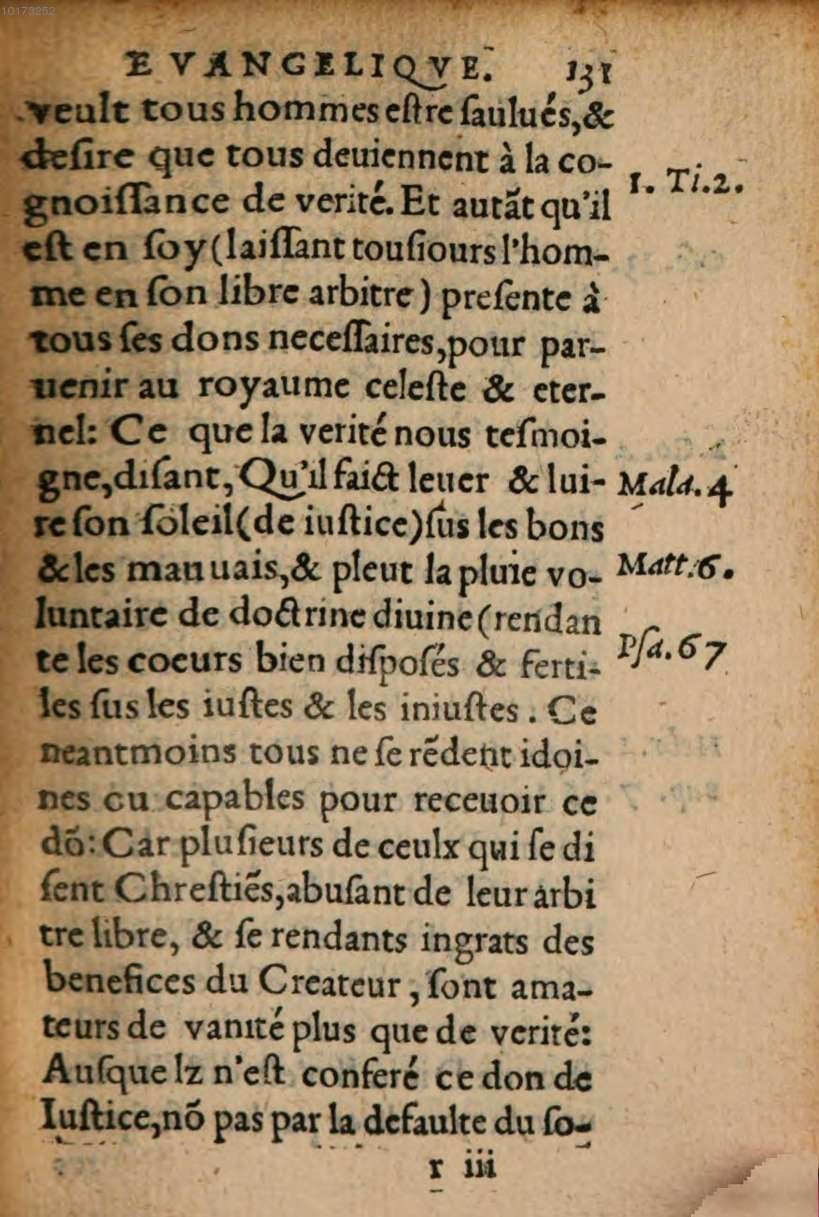 10173252
EVANGELIQVE. 131
veult tous hommes eſtre ſaulués,&
deſire que tous deuiennent à la co-
gnoiſſance de verité. Et autāt qu'il
1. Ti.2.
eſt en ſoy (laiſſant touſiours l'hom-
me en ſon libre arbitre) preſente à
tous ſes dons neceſſaires, pour par-
uenir au royaume celeſte & eter-
nel: Ce que la verité nous teſmoi-
gne, diſant, Qu'il faict leuer & lui-
Mala. 4
re ſon ſoleil (de iuſtice) ſus les bons
& les mauuais, & pleut la pluie vo-
Matt. 6.
luntaire de doctrine diuine (rendan
te les coeurs bien diſpoſés & ferti-
Pſa. 67
les ſus les iuſtes & les iniuſtes. Ce
neantmoins tous ne ſe rēdent idoi-
nes cu capables pour receuoir ce
dō: Car pluſieurs de ceulx qui ſe di
ſent Chreſtiēs, abuſant de leur arbi
tre libre, & ſe rendants ingrats des
benefices du Createur, ſont ama-
teurs de vanité plus que de verité:
Auſquelz n'eſt conferé ce don de
Iuſtice, nō pas par la defaulte du ſo-
r iii